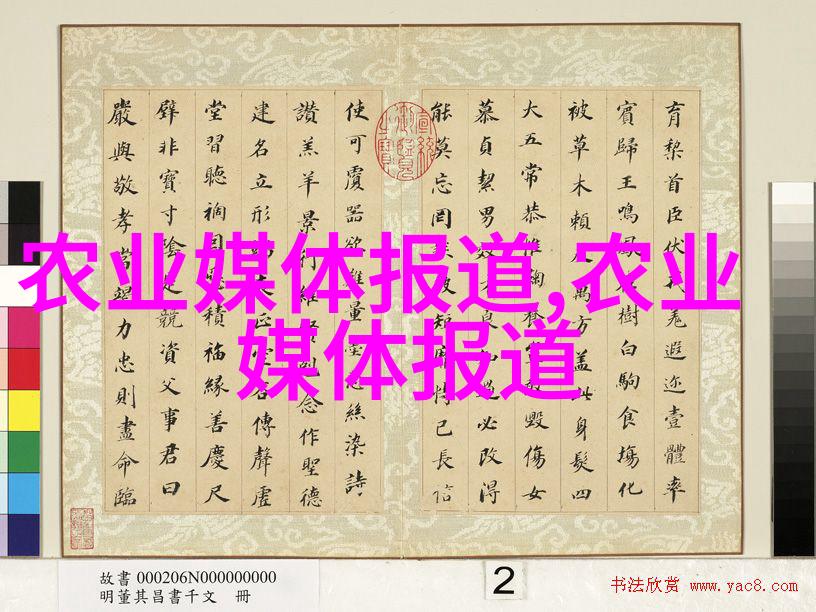 农业媒体报道,农业
媒体报道
育棃首臣伏羌遐迩壹體率
賓歸王鳴鳳樹白駒食場化
被草木賴萬方蓋此身髮四
大五常恭惟鞠養毀傷女
慕貞絜男效才良知過必改得
能莫忘罔彼短恃己長信
使可覆器欲難量絲染詩
讚羔羊景行維賢念作聖德
建名立形表正谷傳聲虛
堂習聽禍因積福緣善慶尺
璧非寶寸陰是競資父事君曰
嚴與敬孝當竭力忠則盡命臨
故書 000206N000000000
明董其昌書千文 冊
2
书法欣赏 www.yac8.com